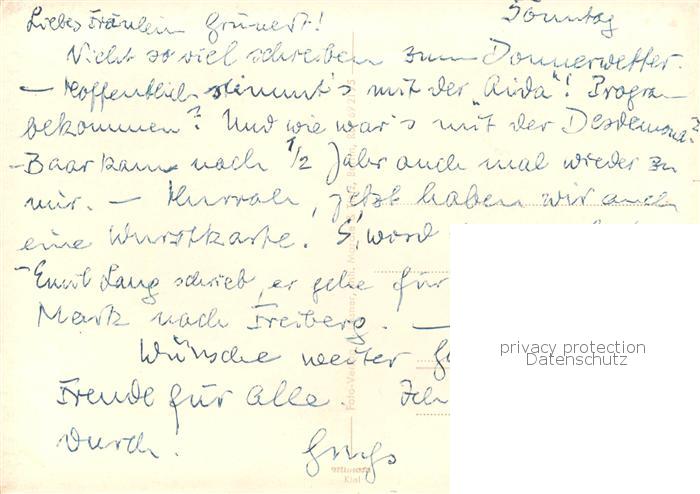 Liebes Fräulein Grünert! Sonntag
Nicht so viel schreiben zum Donnerwetter.
— Hoffentlich stimmt's mit der „Aida"! Program
bekommen? Und wie war's mit der Desdemona?
– Baar kam nach 1/2 Jahr auch mal wieder zu
mir. – Hurrah, jetzt haben wir auch
eine Wurstkarte. S'word
– Emil Lang schrieb, er gehe für
Mark nach Freiberg. —
Wünsche weiter
Freude für Alle. Ich
durch!
Kiel
privacy protection
Datenschutz